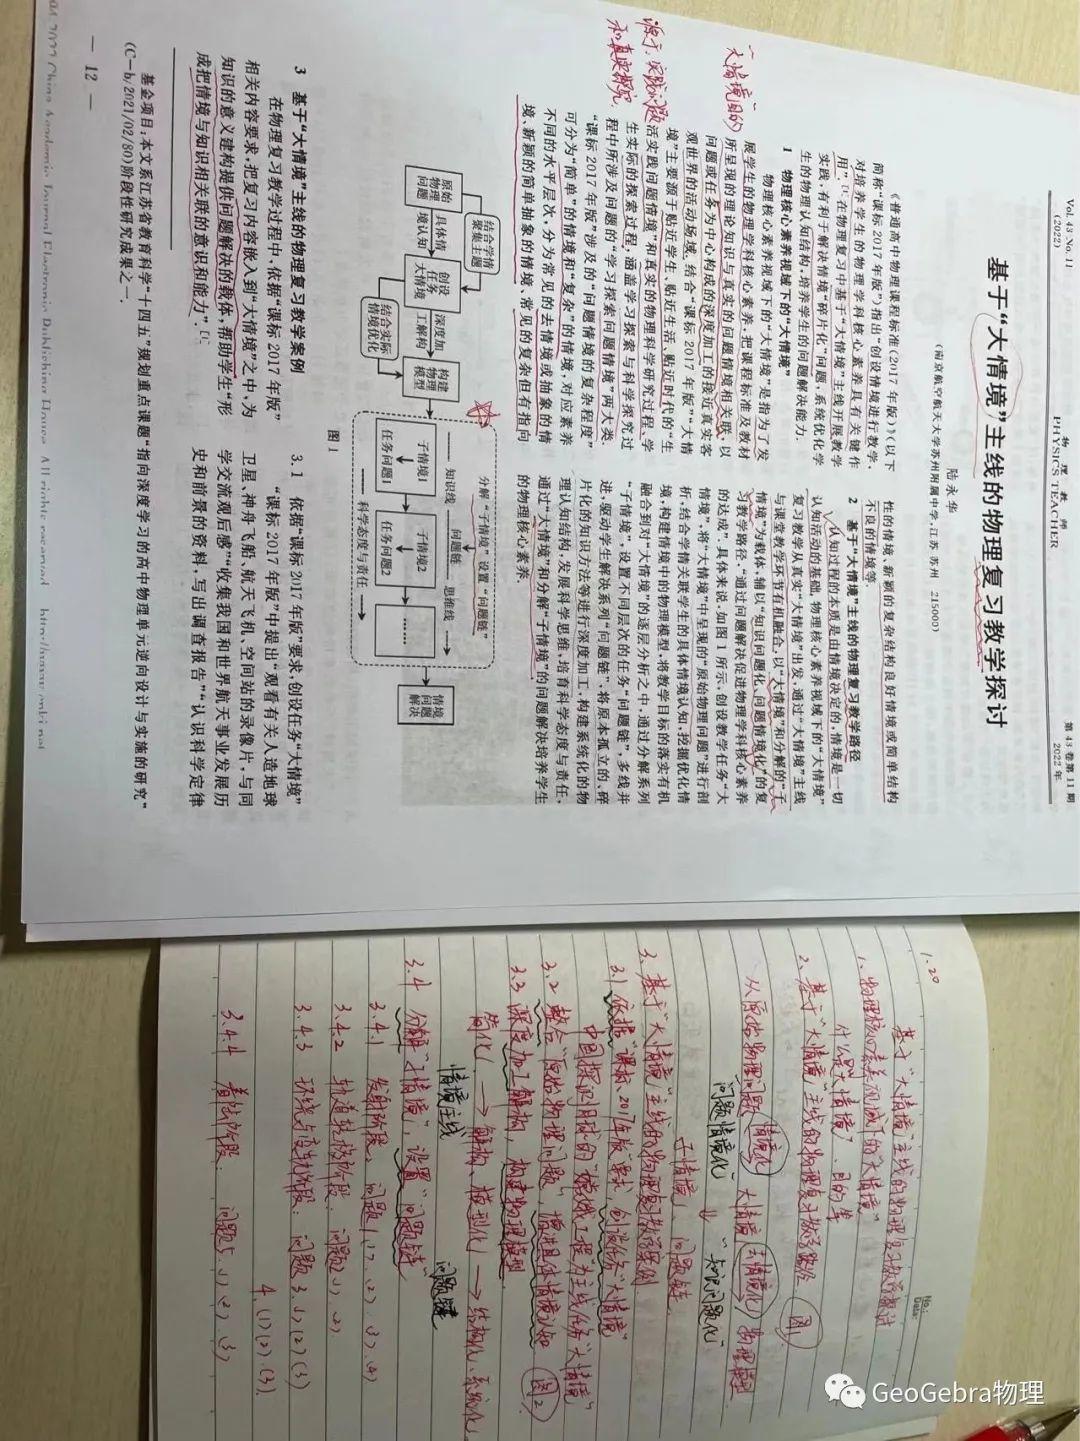 Vol. 43 No. 11
(2022)
物 理 教 师
PHYSICS TEACHER
第 43 卷第 11 期
2022 年
基于“大情境”主线的物理复习教学探讨
陆永华
(南京航空航天大学苏州附属中学,江苏 苏州 215000)
《普通高中物理课程标准(2017 年版)》(以下
简称“课标 2017 年版”)指出“创设情境进行教学,
对培养学生的物理学科核心素养具有关键作
用”.[1]在物理复习中基于“大情境”主线开展教学
实践,有利于解决情境“碎片化”问题,系统优化学
生的物理认知结构,培养学生的问题解决能力.
1 物理核心素养视域下的“大情境”
物理核心素养视域下的“大情境”是指为了发
展学生的物理学科核心素养,把课程标准及教材
所呈现的理论知识与真实的问题情境相关联,以
问题或任务为中心构成的深度加工的接近真实客
观世界的活动场域. 结合“课标 2017 年版”“大情
境”主要源于贴近学生、贴近生活、贴近时代的“生
活实践问题情境”和真实的物理科学研究过程、学
生实际的探索过程,涵盖学习探索与科学探究过
程中所涉及问题的“学习探索问题情境”两大类.
“课标 2017 年版”涉及的“问题情境的复杂程度”
可分为“简单”的情境和“复杂”的情境,对应素养
不同的水平层次,分为常见的去情境或抽象的情
境、新颖的简单抽象的情境、常见的复杂但有指向
性的情境、新颖的复杂结构良好情境或简单结构
不良的情境等.
2 基于“大情境”主线的物理复习教学路径
认知过程的本质是由情境决定的,情境是一切
认知活动的基础. 物理核心素养视域下的“大情境”
复习教学从真实“大情境”出发,通过“大情境”主线
与课堂教学环节有机融合,以“大情境”和分解的“子
情境”为载体,辅以“知识问题化、问题情境化”的复
习教学路径,“通过问题解决促进物理学科核心素养
的达成”. 具体来说,如图 1 所示,创设教学任务“大
情境”,将“大情境”中呈现的“原始物理问题”进行剖
析,结合学情关联学生的具体情境认知,挖掘优化情
境,构建情境中的物理模型,将教学目标的落实有机
融合到对“大情境”的逐层分析之中,通过分解系列
“子情境”,设置不同层次的任务“问题链”,多线并
进,驱动学生解决系列“问题链”,将原本孤立的、碎
片化的知识方法等进行深度加工,构建系统化的物
理认知结构,发展科学思维,培育科学态度与责任,
通过“大情境”和分解“子情境”的问题解决培养学生
的物理核心素养.
原始物理问题
结合学情聚集主题
具体情境认知
创设任务大情境
结合实际情境优化
深度加工解构
构建物理模型
分解“子情境”设置“问题链”
知识线 问题链 思维线
子情境1
任务问题1
子情境2
任务问题2
……
科学态度与责任
情境问题解决
图 1
3 基于“大情境”主线的物理复习教学案例
在物理复习教学过程中,依据“课标 2017 年版”
相关内容要求,把复习内容嵌入到“大情境”之中,为
知识的意义建构提供问题解决的载体,帮助学生“形
成把情境与知识相关联的意识和能力”.[1]
3.1 依据“课标 2017 年版”要求,创设任务“大情境”
“课标 2017 年版”中提出“观看有关人造地球
卫星、神舟飞船、航天飞机、空间站的录像片,与同
学交流观后感”“收集我国和世界航天事业发展历
史和前景的资料,写出调查报告”“认识科学定律
基金项目:本文系江苏省教育科学“十四五”规划重点课题“指向深度学习的高中物理单元逆向设计与实施的研究”
(C—b/2021/02/80)阶段性研究成果之一.
— 12 —
China Academic Journal Electronic Publishing House. All rights reserved. http://www.cnki.net
“大情境”目的
源于:实践问题
和真实探究
No.:
Date:
1.20
基于“大情境”主线的物理复习教学探讨
1. 物理核心素养视域下的“大情境”
什么是大情境、目的等
2. 基于“大情境”主线的物理复习教学路径 图1
从原始物理问题 情境化 大情境 物理模型
问题情境化 “知识问题化”
子情境、问题链
3. 基于“大情境”主线的物理复习教学案例
3.1 依据“课标2017年版”要求,创设任务“大情境”
中国探测月球的“嫦娥工程”为主线任务“大情境”
3.2 整合“原始物理问题”,增进具体情境认知 图2
3.3 深度加工解构,构建物理模型
简化 → 解构、模型化 → 结构化、系统化
情境主线 问题链
3.4 分解“子情境”,设置“问题链”
3.4.1 发射阶段:问题1、(1)、(2)、(3)、(4)
3.4.2 轨道转移阶段:问题2、(1)、(2)
3.4.3 环绕与变轨阶段:问题3、(1)、(2)、(3)
4、(1)(2)、(3)
3.4.4 着陆阶段:问题5、(1)、(2)、(3)
GeoGebra物理